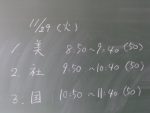 11/29 (火)
1. 美 8:50~9:40 (50)
2. 社 9:50~10:40 (50)
3. 国 10:50~11:40 (50)